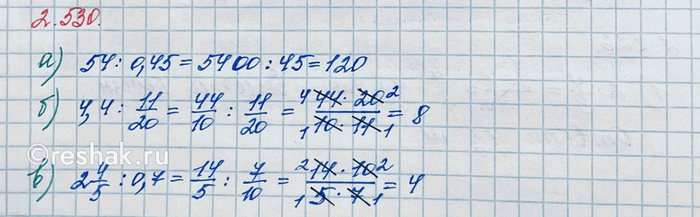 2.530.
а) 54 : 0,45 = 5400 : 45 = 120
б) 4,4 : 11/20 = 44/10 : 11/20 = (⁴44 · 20²)/(₁10 · 11₁) = 8
©reshak.ru
в) 2 4/5 : 0,7 = 14/5 : 7/10 = (²14 · 10²)/(₁5 · 7₁) = 4